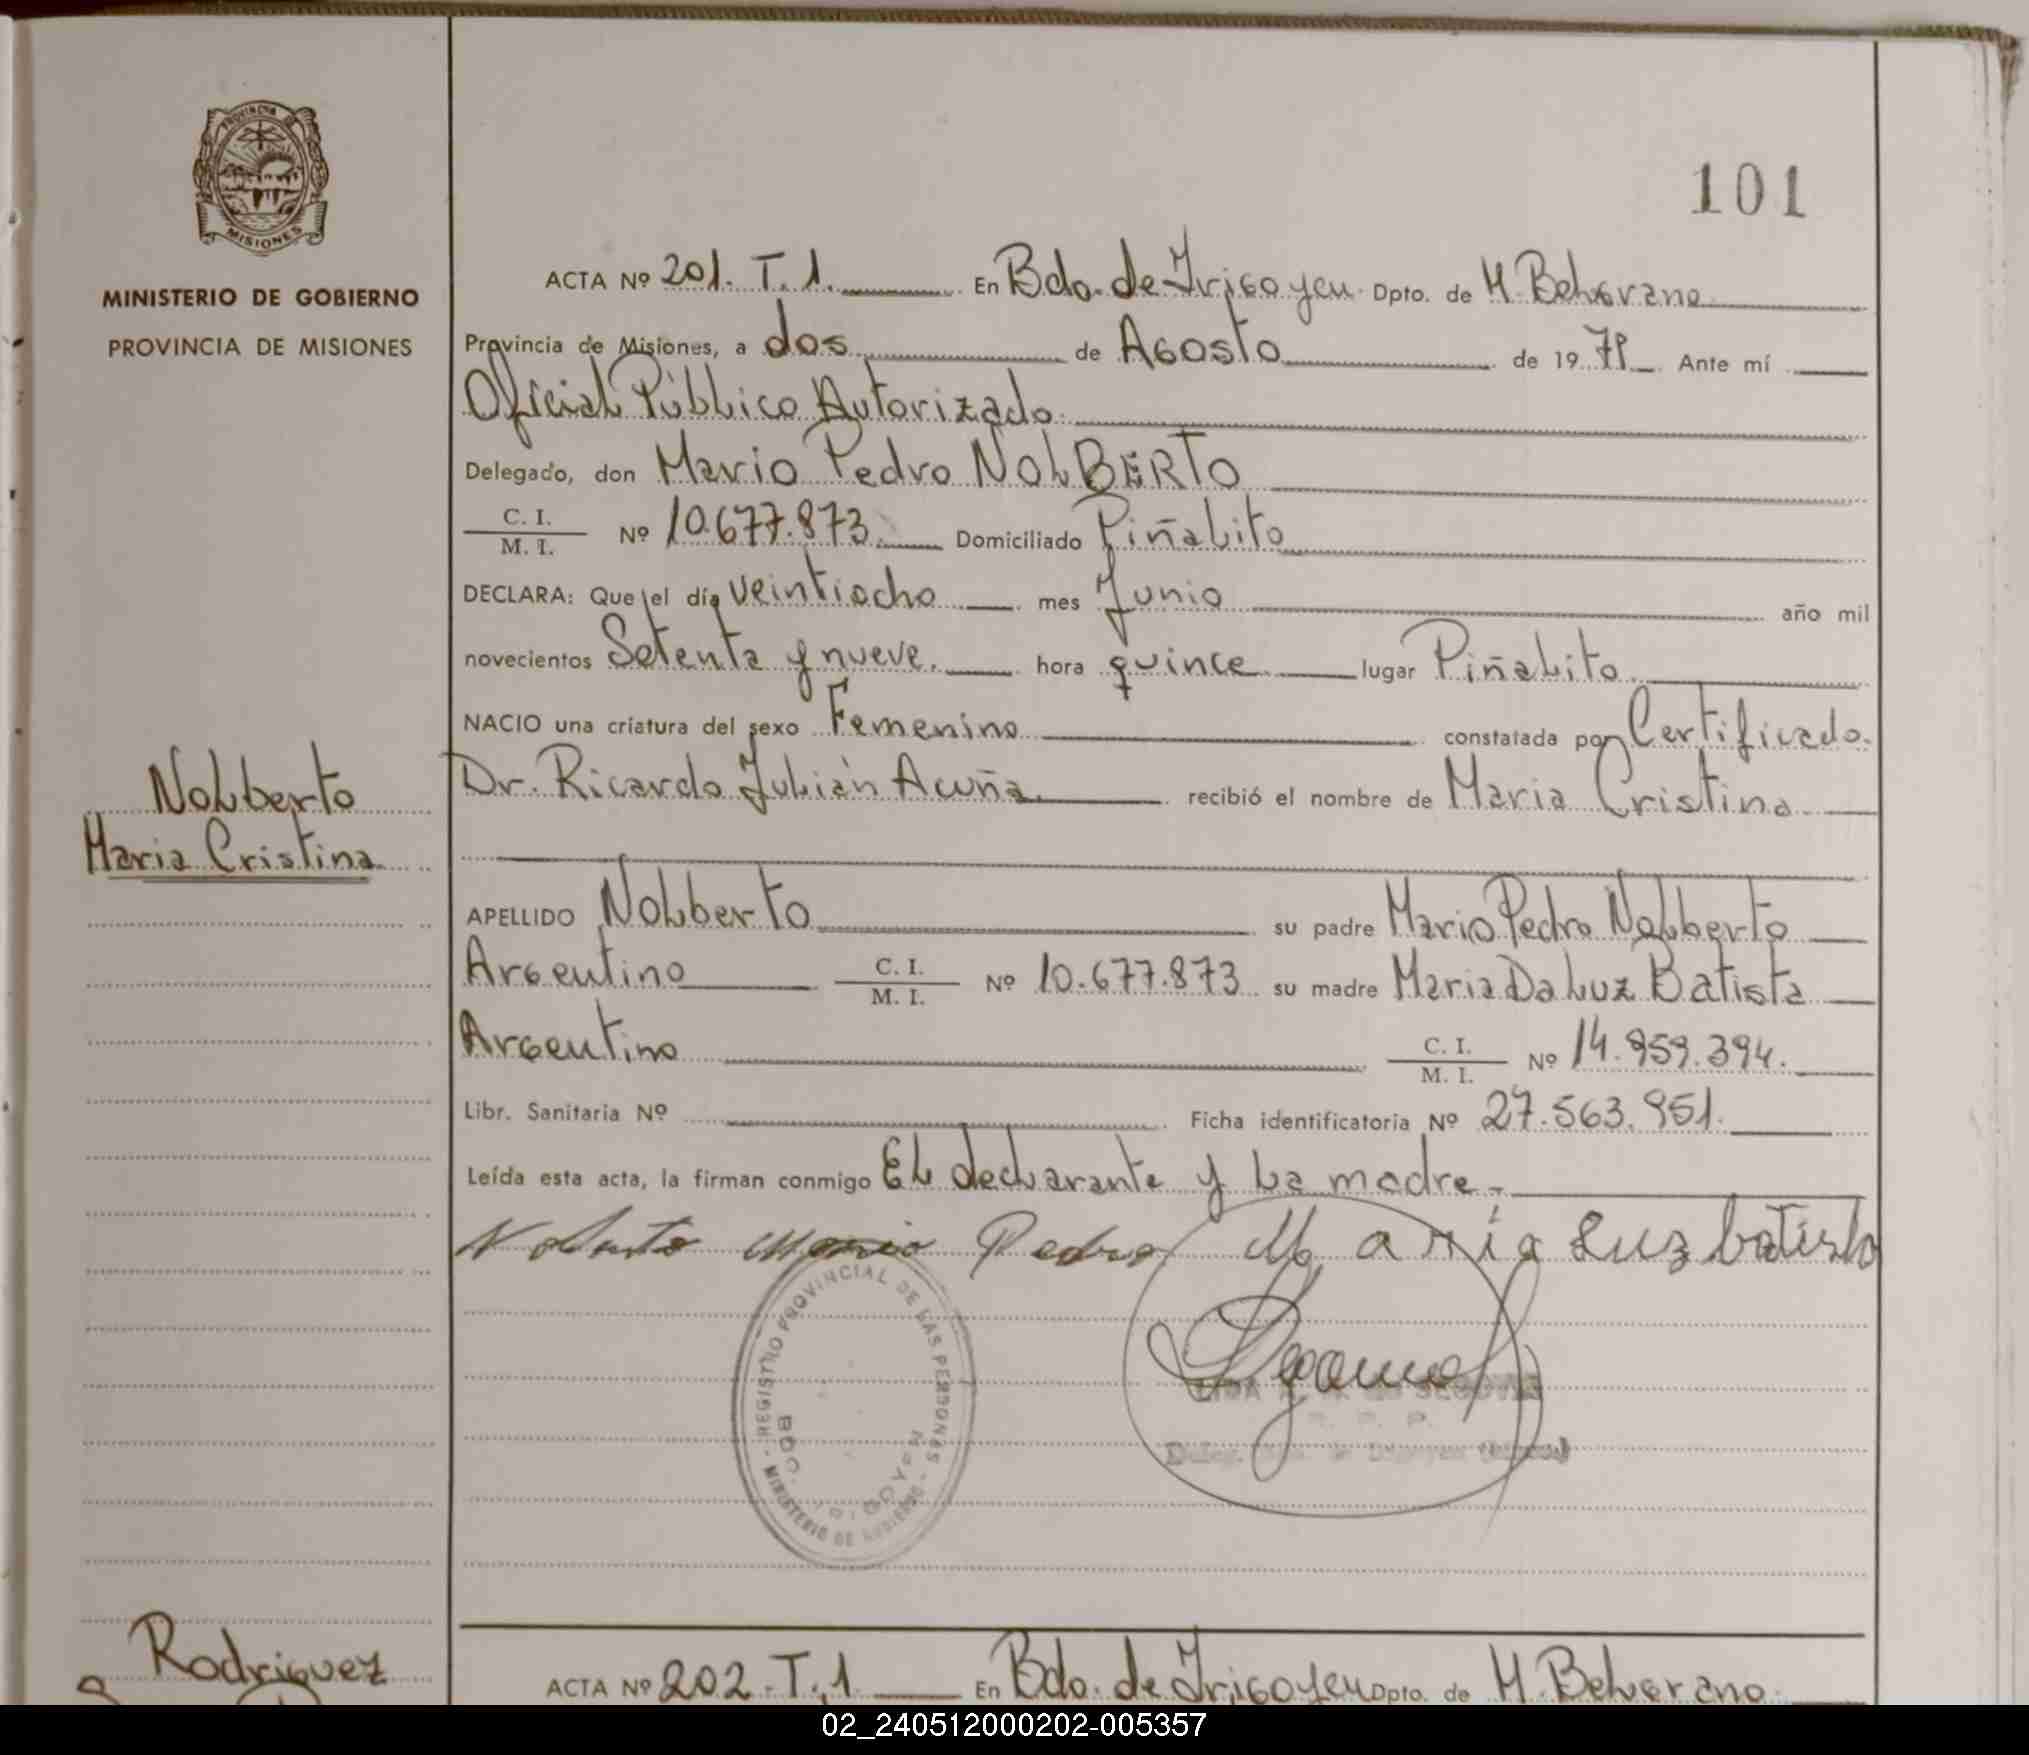 101
PROVINCIA DE
MISIONES
MINISTERIO DE GOBIERNO
PROVINCIA DE MISIONES
ACTA Nº 201. T. 1. En Bdo. de Irigoyen Dpto. de M. Belgrano
Provincia de Misiones, a dos de Agosto de 1979 Ante mí
Oficial Público Autorizado
Delegado, don Mario Pedro NOLBERTO
C. I.
M. I. Nº 10.677.873 Domiciliado Piñalito
DECLARA: Que el día veintiocho mes Junio año mil
novecientos Setenta y nueve. hora quince lugar Piñalito
NACIO una criatura del sexo Femenino constatada por Certificado.
Dr. Ricardo Julián Acuña recibió el nombre de Maria Cristina
Nolberto
Maria Cristina
APELLIDO Nolberto su padre Mario Pedro Nolberto
Argentino C. I.
M. I. Nº 10.677.873 su madre Maria Da Luz Batista
Argentino C. I.
M. I. Nº 14.959.394.
Libr. Sanitaria Nº Ficha identificatoria Nº 27.563.951.
Leída esta acta, la firman conmigo El declarante y la madre.-
Nolberto Mario Pedro Maria Luz batista
REGISTRO PROVINCIAL DE LAS PERSONAS - MINISTERIO DE GOBIERNO -
BDO. IRIGOYEN
Rodriguez
ACTA Nº 202. T. 1 En Bdo. de Irigoyen Dpto. de M. Belgrano
02_240512000202-005357